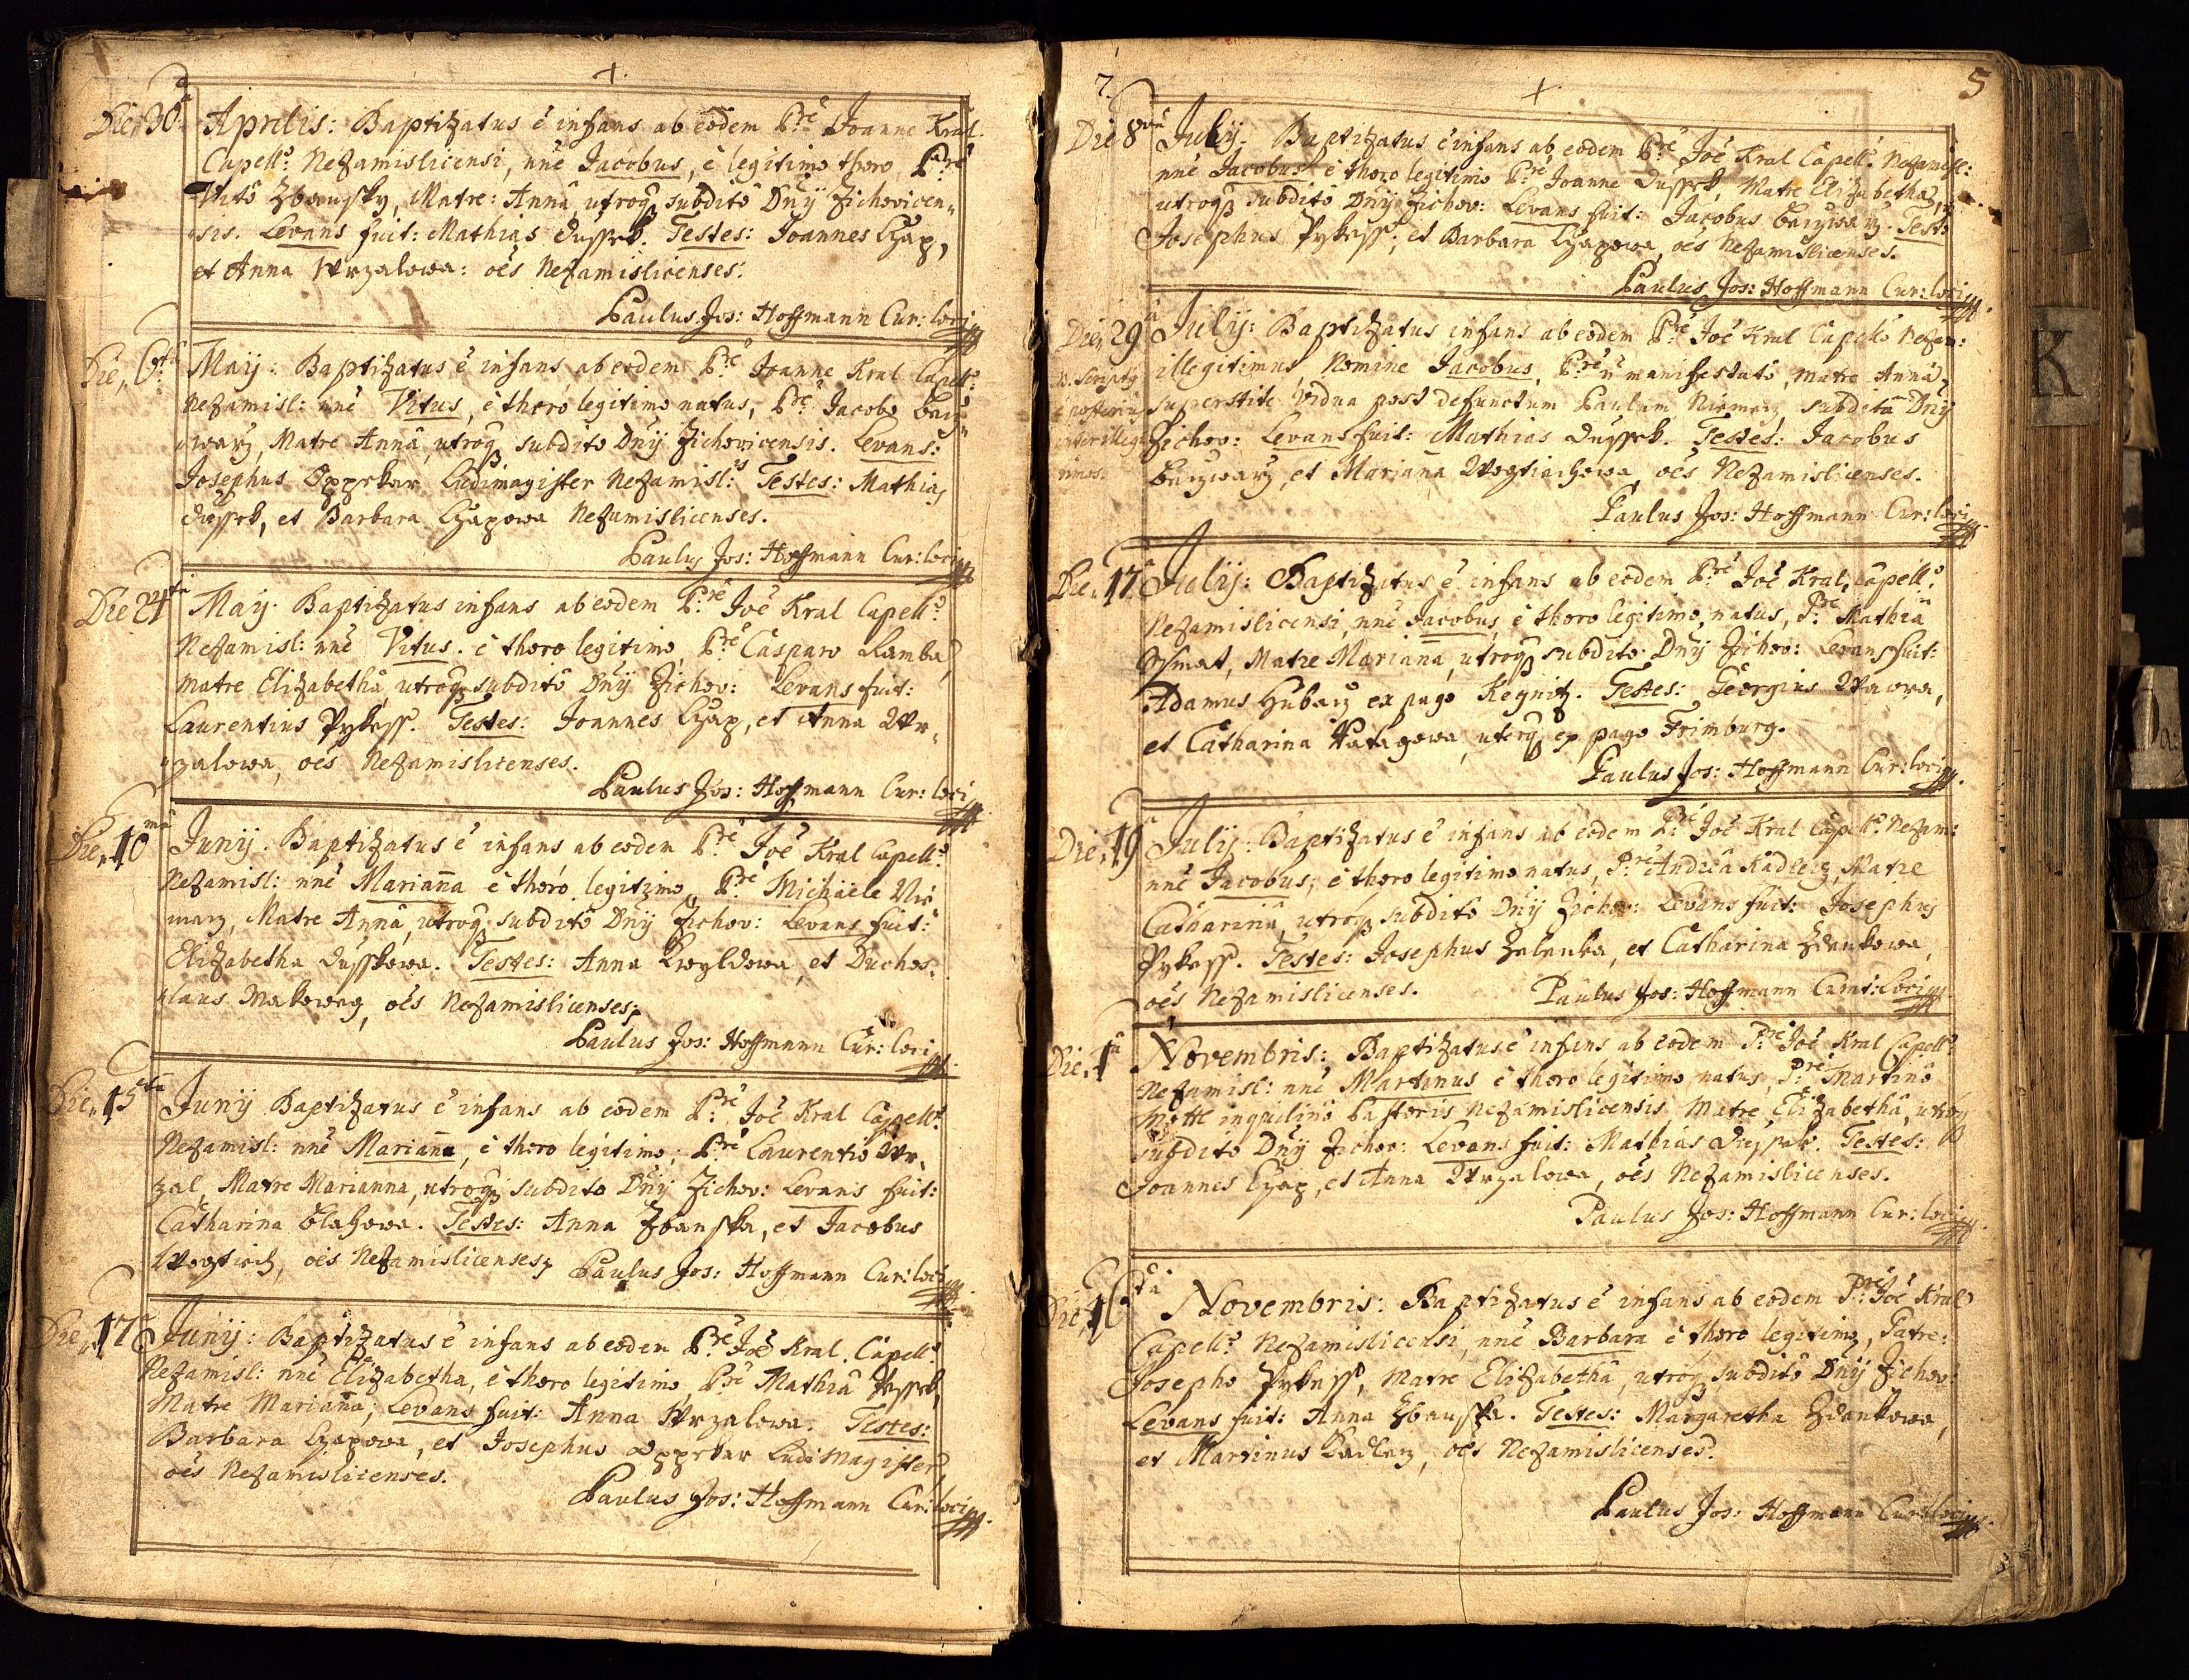 +
Die 30ª Aprilis: Baptizatus é infans ab eodem P:re Joanne Kral
Capell:o Nezamislicensi, nné Jacobus, é legitimo thoro, P:re
Vitô Zbansky, Matre: Annâ, utroq subditô Dnÿ Zichovicen„
sis. Levans fuit: Mathias Dussek. Testes: Joannes Czap,
et Anna Wrzalowa: oés Nezamislicenses.
Paulus Jos: Hoffmann Cur: loci
Die 6ta Maÿ: Baptizatus é infans ab eodem P:re Joanne Kral Capell:o
Nezamisl: nné Vitus, é thoro legitimo natus, P:re Jacobo
Matre Annâ, utroq subdito Dnÿ Zichovicensis. Levans:
Josephus Oppekar Ludimagister Nezamisl: Testes: Mathias
Dussek, et Barbara Czapowa Nezamislicenses.
Paulus Jos: Hoffmann Cur: loci
Die Maÿ. Baptizatus infans ab eodem P:re Joé Kral Capell:o
Nezamisl: nné Vitus. é thoro legitimo, P:re Casparo Kamba,
Matre Elizabethâ, utroq subditô Dnÿ Zichov: Levans fuit:
Laurentius Pykess. Testes: Joannes Czap, et Anna Wr„
„zalowa, oés Nezamislicenses.
Paulus Jos: Hoffmann Cur: loci
Die 10ma Junÿ. Baptizatus é infans, ab eodem P:re Joé Kral Capell:o
Nezamisl: nné Marianna é thoro legitimo, P:re Michaele Nie
marz, Matre Annâ, utroq subditô Dnÿ Zichov: Levans fuit:
Elizabetha Dusskowa. Testes: Anna et Duchos„
„laus oés Nezamislicenses,
Paulus Jos: Hoffmann Cur: loci
Die 15ta Junÿ Baptizatus é infans ab eodem P:re Joé Kral Capell:o
Nezamisl: nné Marianna, é thoro legitimo, P:re Laurentiô Wr„
zal, Matre Marianna, utroq subdito Dnÿ Zichov: Levans fuit:
Catharina Blahowa. Testes: Anna Zbanska, et Jacobus
oés Nezamislicenses, Paulus Jos: Hoffmann Cur: loci
Die 17 Junÿ: Baptizatus é infans ab eodem P:re Joé Kral. Capell:o
Nezamisl: nné Elizabetha, é thoro legitimo, P:re Mathiâ
Matre Marianna, Levans fuit: Anna Wrzalowa. Testes:
Barbara Czapowa, et Josephus Oppekar Ludimagister,
oés Nezamislicenses.
Paulus Jos: Hoffmann Cur: loci
7. + 5
Die 8va Julÿ: Baptizatus é infans ab eodem P:re Joé Kral Capell:o Nezamisl:
nné Jacobus é thoro legitimo P:re Joanne Dussek, Matre Elizabethâ,
utroq subditô Dnÿ Zichov: Levans fuit: Jacobus Test:
Josephus Pykess, et Barbara Czapowa, oés Nezamislicenses.
Paulus Jos: Hoffmann Cur: loci
Die 29ª Julÿ: Baptizatus infans ab eodem P:re Joé Kral Capell:o Nezam:
illegitimus, Nomine Jacobus, P:re ñ manifestatô, Matre Annâ,
superstite Vidua post defunctum Paulum Niemarz, subditâ Dnÿ
Zichov: Levans fuit: Mathias Dussek. Testes: Jacobus
et Marianna oés Nezamislicenses.
Paulus Jos: Hoffmann Cur: loci
Die 17 Julÿ: Baptizatus é infans ab eodem P:re Joé Kral, Capell:o
Nezamislicensi, nné Jacobus, é thoro legitimo, natus, P:re Mathiâ
Matre Marianna, utroq subdito Dnÿ Zichov: Levans fuit:
Adamus ex pago Testes: Georgius Wawra,
et Catharina uterq ex pago Frimburg.
Paulus Jos: Hoffmann Cur: loci
Die 19 Julÿ: Baptizatus é infans ab eodem P:re Joé Kral Capell:o Nezam:
nné Jacobus, é thoro legitimo natus, P:re Andreâ Kadlecz, Matre
Catharinâ, utroq subditô Dnÿ Zichov: Levans fuit: Josephus
Pykess. Testes: Josephus Zelenka, et Catharina Zdankowa,
oés Nezamislicenses. Paulus Jos: Hoffmann Curat: Loci
Die 1ª Novembris: Baptizatus é infans ab eodem P:re Joé Kral Capell:o
Nezamisl: nné Martinus é thoro legitimo natus, P:re Martinô
inquilinô Pastoris Nezamislicensis, Matre Elizabethâ, utroq
subdito Dnÿ Zichov: Levans fuit: Mathias Dussek. Testes:
Joannes Czap, et Anna Wrzalowa, oés Nezamislicenses.
Paulus Jos: Hoffmann Cur: loci
Die 16ta Novembris: Baptizatus é infans ab eodem P:re Joé Kral
Capell:o Nezamislicensi, nné Barbara é thoro legitimo, Patre:
Josepho Pykess, Matre Elizabethâ, utroq subditô Dnÿ Zichov:
Levans fuit: Anna Zbanska. Testes: Margaretha Zdankowa,
et Martinus Kadlecz, oés Nezamislicenses.
Paulus Jos: Hoffmann Cur: loci
K